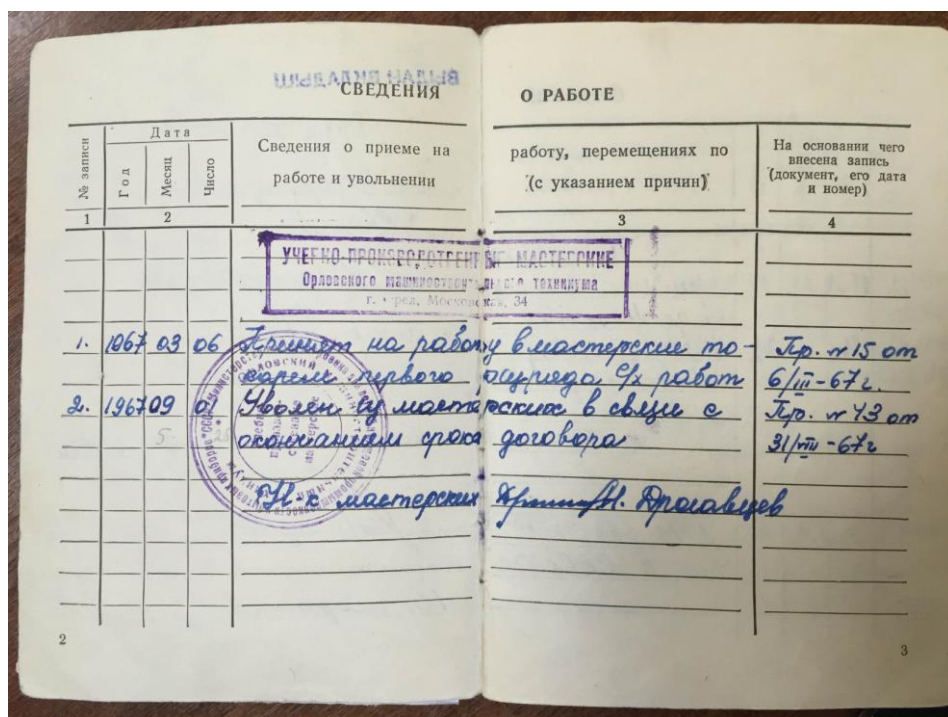 ВЫДАН ВКЛАДЫШ
СВЕДЕНИЯ О РАБОТЕ
№ записи
Дата
Год
Месяц
Число
Сведения о приеме на работу, перемещениях по
работе и увольнении (с указанием причин)
На основании чего
внесена запись
(документ, его дата
и номер)
1 2 3 4
УЧЕБНО-ПРОИЗВОДСТВЕННЫЕ МАСТЕРСКИЕ
Орловского машиностроительного техникума
г. Орел, Московская, 34
1. 1967 03 06 Принят на работу в мастерские то- Пр. № 15 от
карем первого разряда х/р работ 6/III-67г.
2. 1967 09 Уволен из мастерских в связи с Пр. № 43 от
окончанием срока договора 31/VIII-67г
Н-к мастерских Н. Драгавцев
2
3